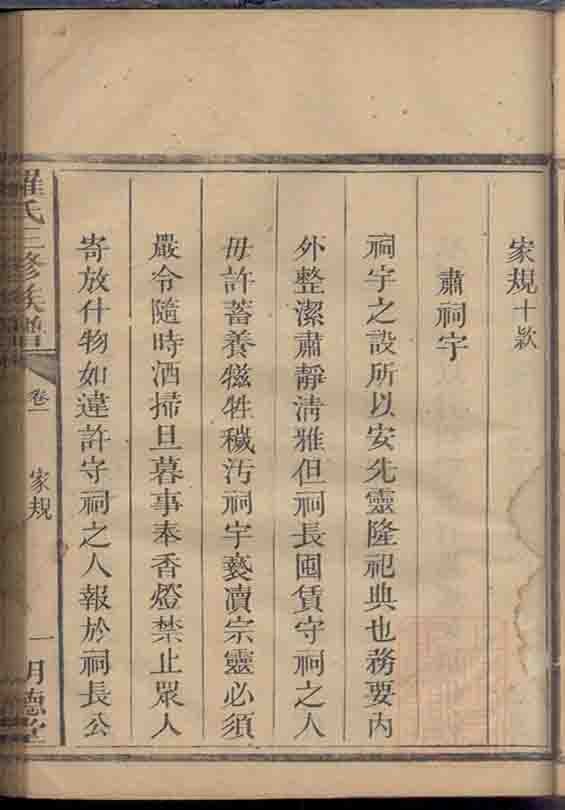 家規十款
肅祠宇
祠宇之設所以安先靈隆祀典也務要內
外整潔肅靜清雅但祠長囤賃守祠之人
毋許蓄養犠牲穢污祠宇褻瀆宗靈必須
嚴令隨時洒掃旦暮事奉香燈禁止眾人
寄放什物如違許守祠之人報於祠長公
羅氏三修族譜 卷一 家規 一 明德堂